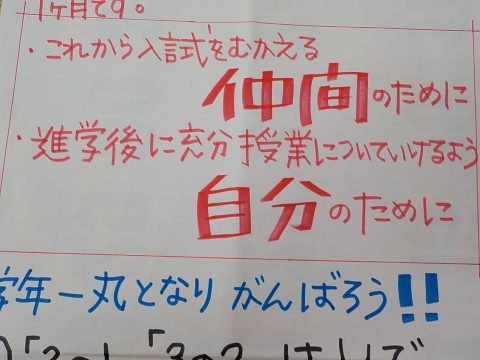 1ヶ月です。
・これから入試をむかえる
仲間のために
・進学後に充分授業についていけるよう
自分のために
学年一丸となり がんばろう!!